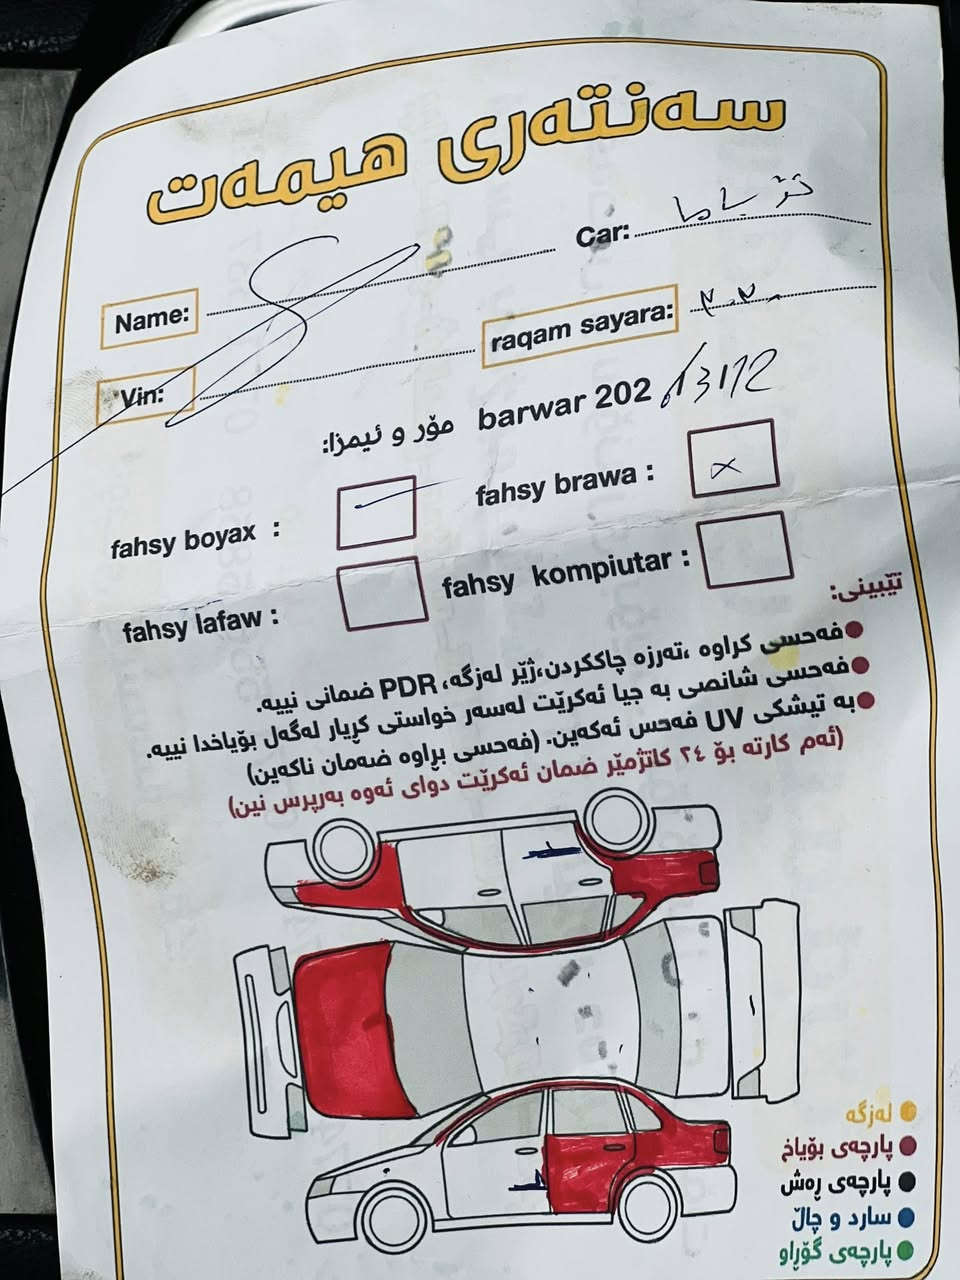 سەنتەری هیمەت
Name:
Car:
Vin:
raqam sayara:
barwar 202
مۆر و ئیمزا:
fahsy boyax :
fahsy brawa :
fahsy lafaw :
fahsy kompiutar :
تێبینی:
فەحسی کراوە ،تەرزە چاککردن،ژێر لەزگە، PDR ضمانی نییە.
فەحسی شانصی بە جیا ئەکرێت لەسەر خواستی کڕیار لەگەل بۆیاخدا نییە.
بە تیشکی UV فەحس ئەکەین. (فەحسی بڕاوە ضەمان ناکەین)
(ئەم کارتە بۆ ٢٤ کاتژمێر ضمان ئەکرێت دوای ئەوە بەرپرس نین)
لەزگە
پارچەی بۆیاخ
پارچەی ڕەش
سارد و چاڵ
پارچەی گۆڕاو